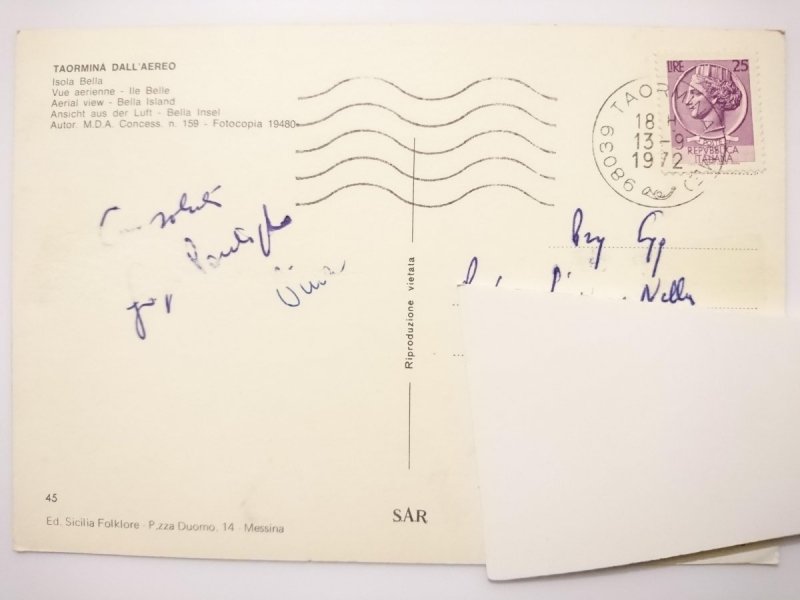 TAORMINA DALL'AEREO
Isola Bella
Vue aerienne - Ile Belle
Aerial view - Bella Island
Ansicht aus der Luft - Bella Insel
Autor. M.D.A. Concess. n. 159 - Fotocopia 19480
LIRE 25
REPVBBLICA
ITALIANA
98039 TAORMINA
18 H
13-9
1972
Nella
Riproduzione vietata
45
Ed. Sicilia Folklore - P.zza Duomo, 14 - Messina
SAR